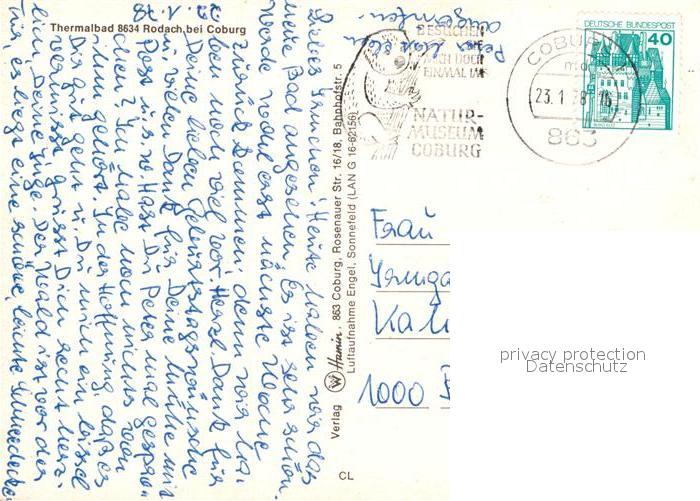 Thermalbad 8634 Rodach, bei Coburg
22. 1. 78
Liebes Irmchen! Heute haben wir das
neue Bad angesehen. Es ist sehr schön.
Werde wohl erst nächste Woche
zurück kommen, denn wir ha-
ben noch viel vor. Herzl. Dank für
Deine lieben Geburtstagswünsche
u. vielen Dank für Deine Mühe mit
Post u. so. Hast Du Peter mal gespro-
chen? Ich habe noch nichts von
ihm gehört. In der Hoffnung, daß es
Dir gut geht u. Du mich ein bissel
vermisst, grüsst Dich recht herz-
lich Deine Inge. Der Wald ist vor der
Tür, es liegt eine schöne, leichte Schneedecke.
Peter
Verlag Hamin, 863 Coburg, Rosenauer Str. 16/18, Bahnhofstr. 5
Luftaufnahme Engel, Sonnefeld (LAN G 16-62156)
CL
BESUCHEN
AUCH DOCH
EINMAL DAS
NATUR-
MUSEUM
COBURG
COBURG
23.1.78
863
DEUTSCHE BUNDESPOST
40
Frau
Irmga
1000
privacy protection
Datenschutz